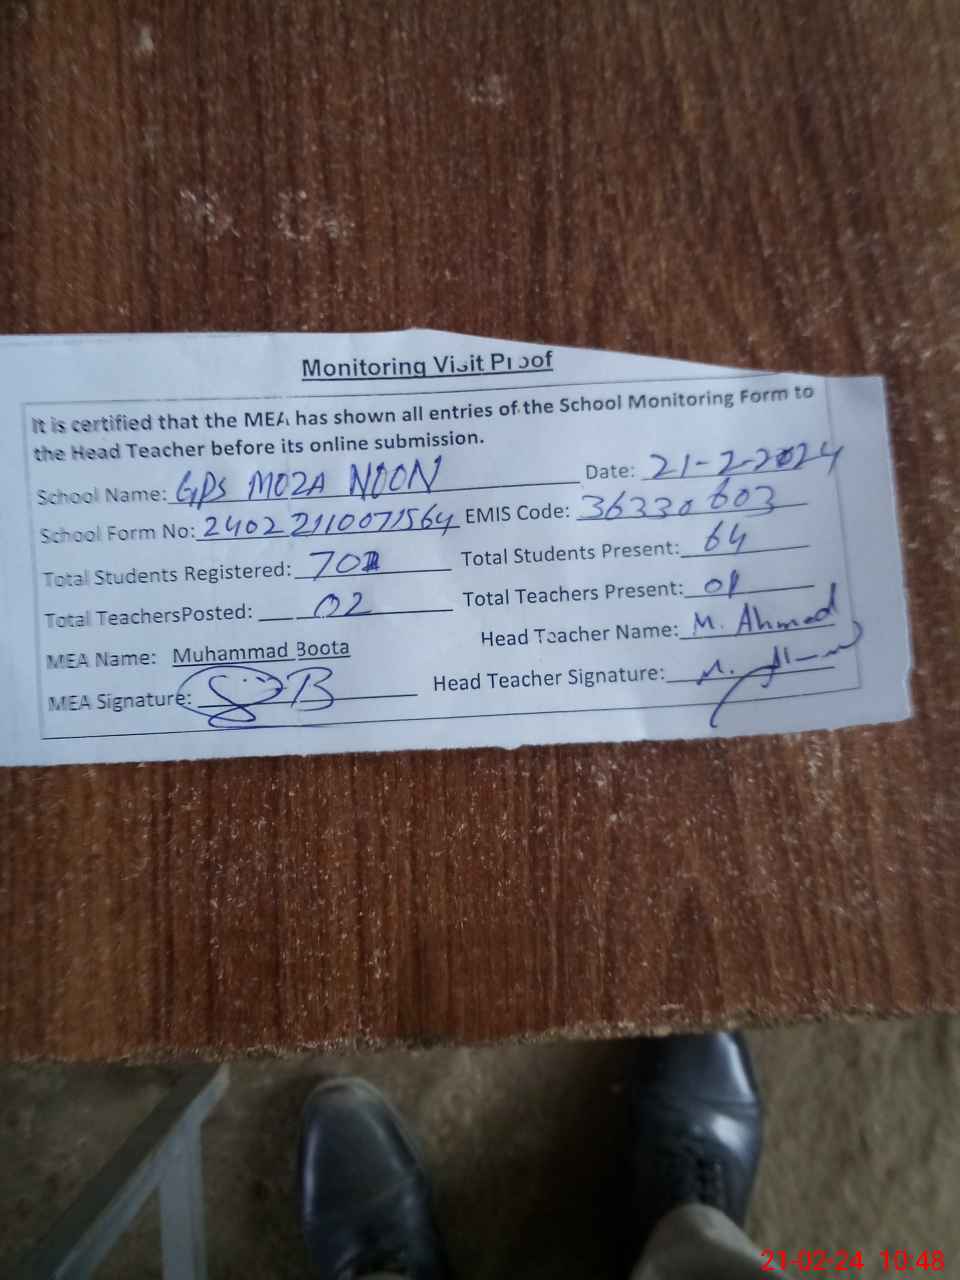 Monitoring Visit Proof
It is certified that the MEA has shown all entries of the School Monitoring Form to
the Head Teacher before its online submission.
School Name: GPS MOZA NOON Date: 21-2-2024
School Form No: 24022110071564 EMIS Code: 36330603
Total Students Registered: 70 Total Students Present: 64
Total TeachersPosted: 02 Total Teachers Present: 01
MEA Name: Muhammad Boota Head Teacher Name: M. Ahmad
MEA Signature: Head Teacher Signature:
21-02-24 10:48